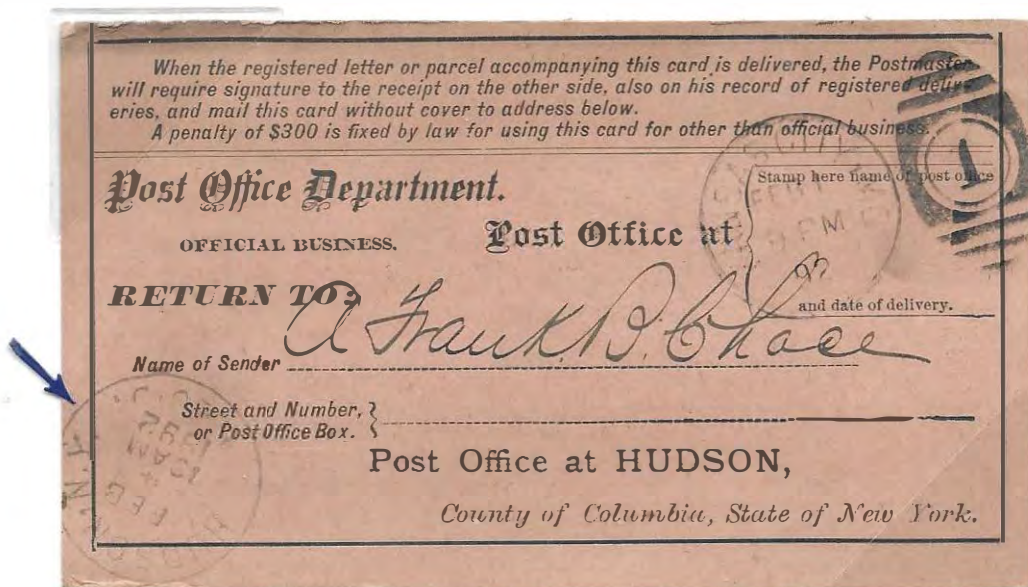 When the registered letter or parcel accompanying this card is delivered, the Postmaster
will require signature to the receipt on the other side, also on his record of registered deliv-
eries, and mail this card without cover to address below.
A penalty of $300 is fixed by law for using this card for other than official business.
Post Office Department.
OFFICIAL BUSINESS.
Post Office at
Stamp here name of post office
9 PM
93
1
RETURN TO:
and date of delivery.
Name of Sender A Frank. B. Chace
Street and Number,
or Post Office Box.
Post Office at HUDSON,
County of Columbia, State of New York.
FEB
4
10 AM